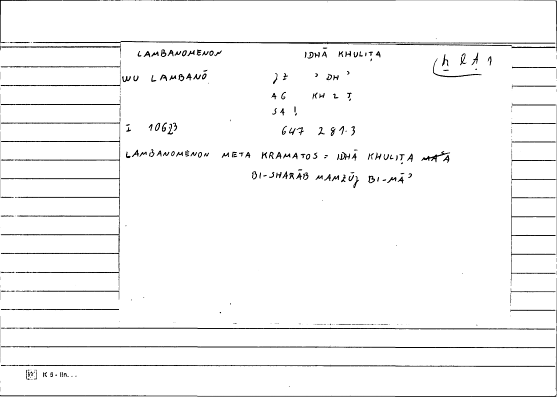 LAMBANOMENON IDHĀ KHULIṬA
WU LAMBANŌ JZ ʾ DH ʾ
AG KH L Ṭ
SA !
I 10633 647 281.3
LAMBANOMENON META KRAMATOS = IDHĀ KHULIṬA
BI-SHARĀB MAMZŪJ BI-MĀʾ
K 5 - lin...